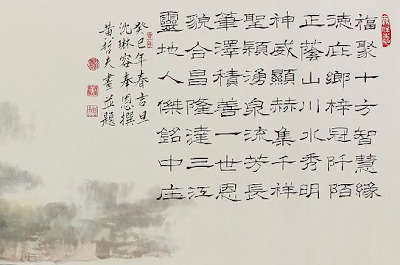 福聚十方智慧緣
德庇鄉梓冠阡陌
正蔭山川水秀明
神威顯赫集千祥
聖穎湧泉流芳長
筆澤積善一世恩
貌合昌隆達三江
靈地人傑銘中庄
癸巳年春吉旦
沈琳容奉恩撰
黃哲夫書並題